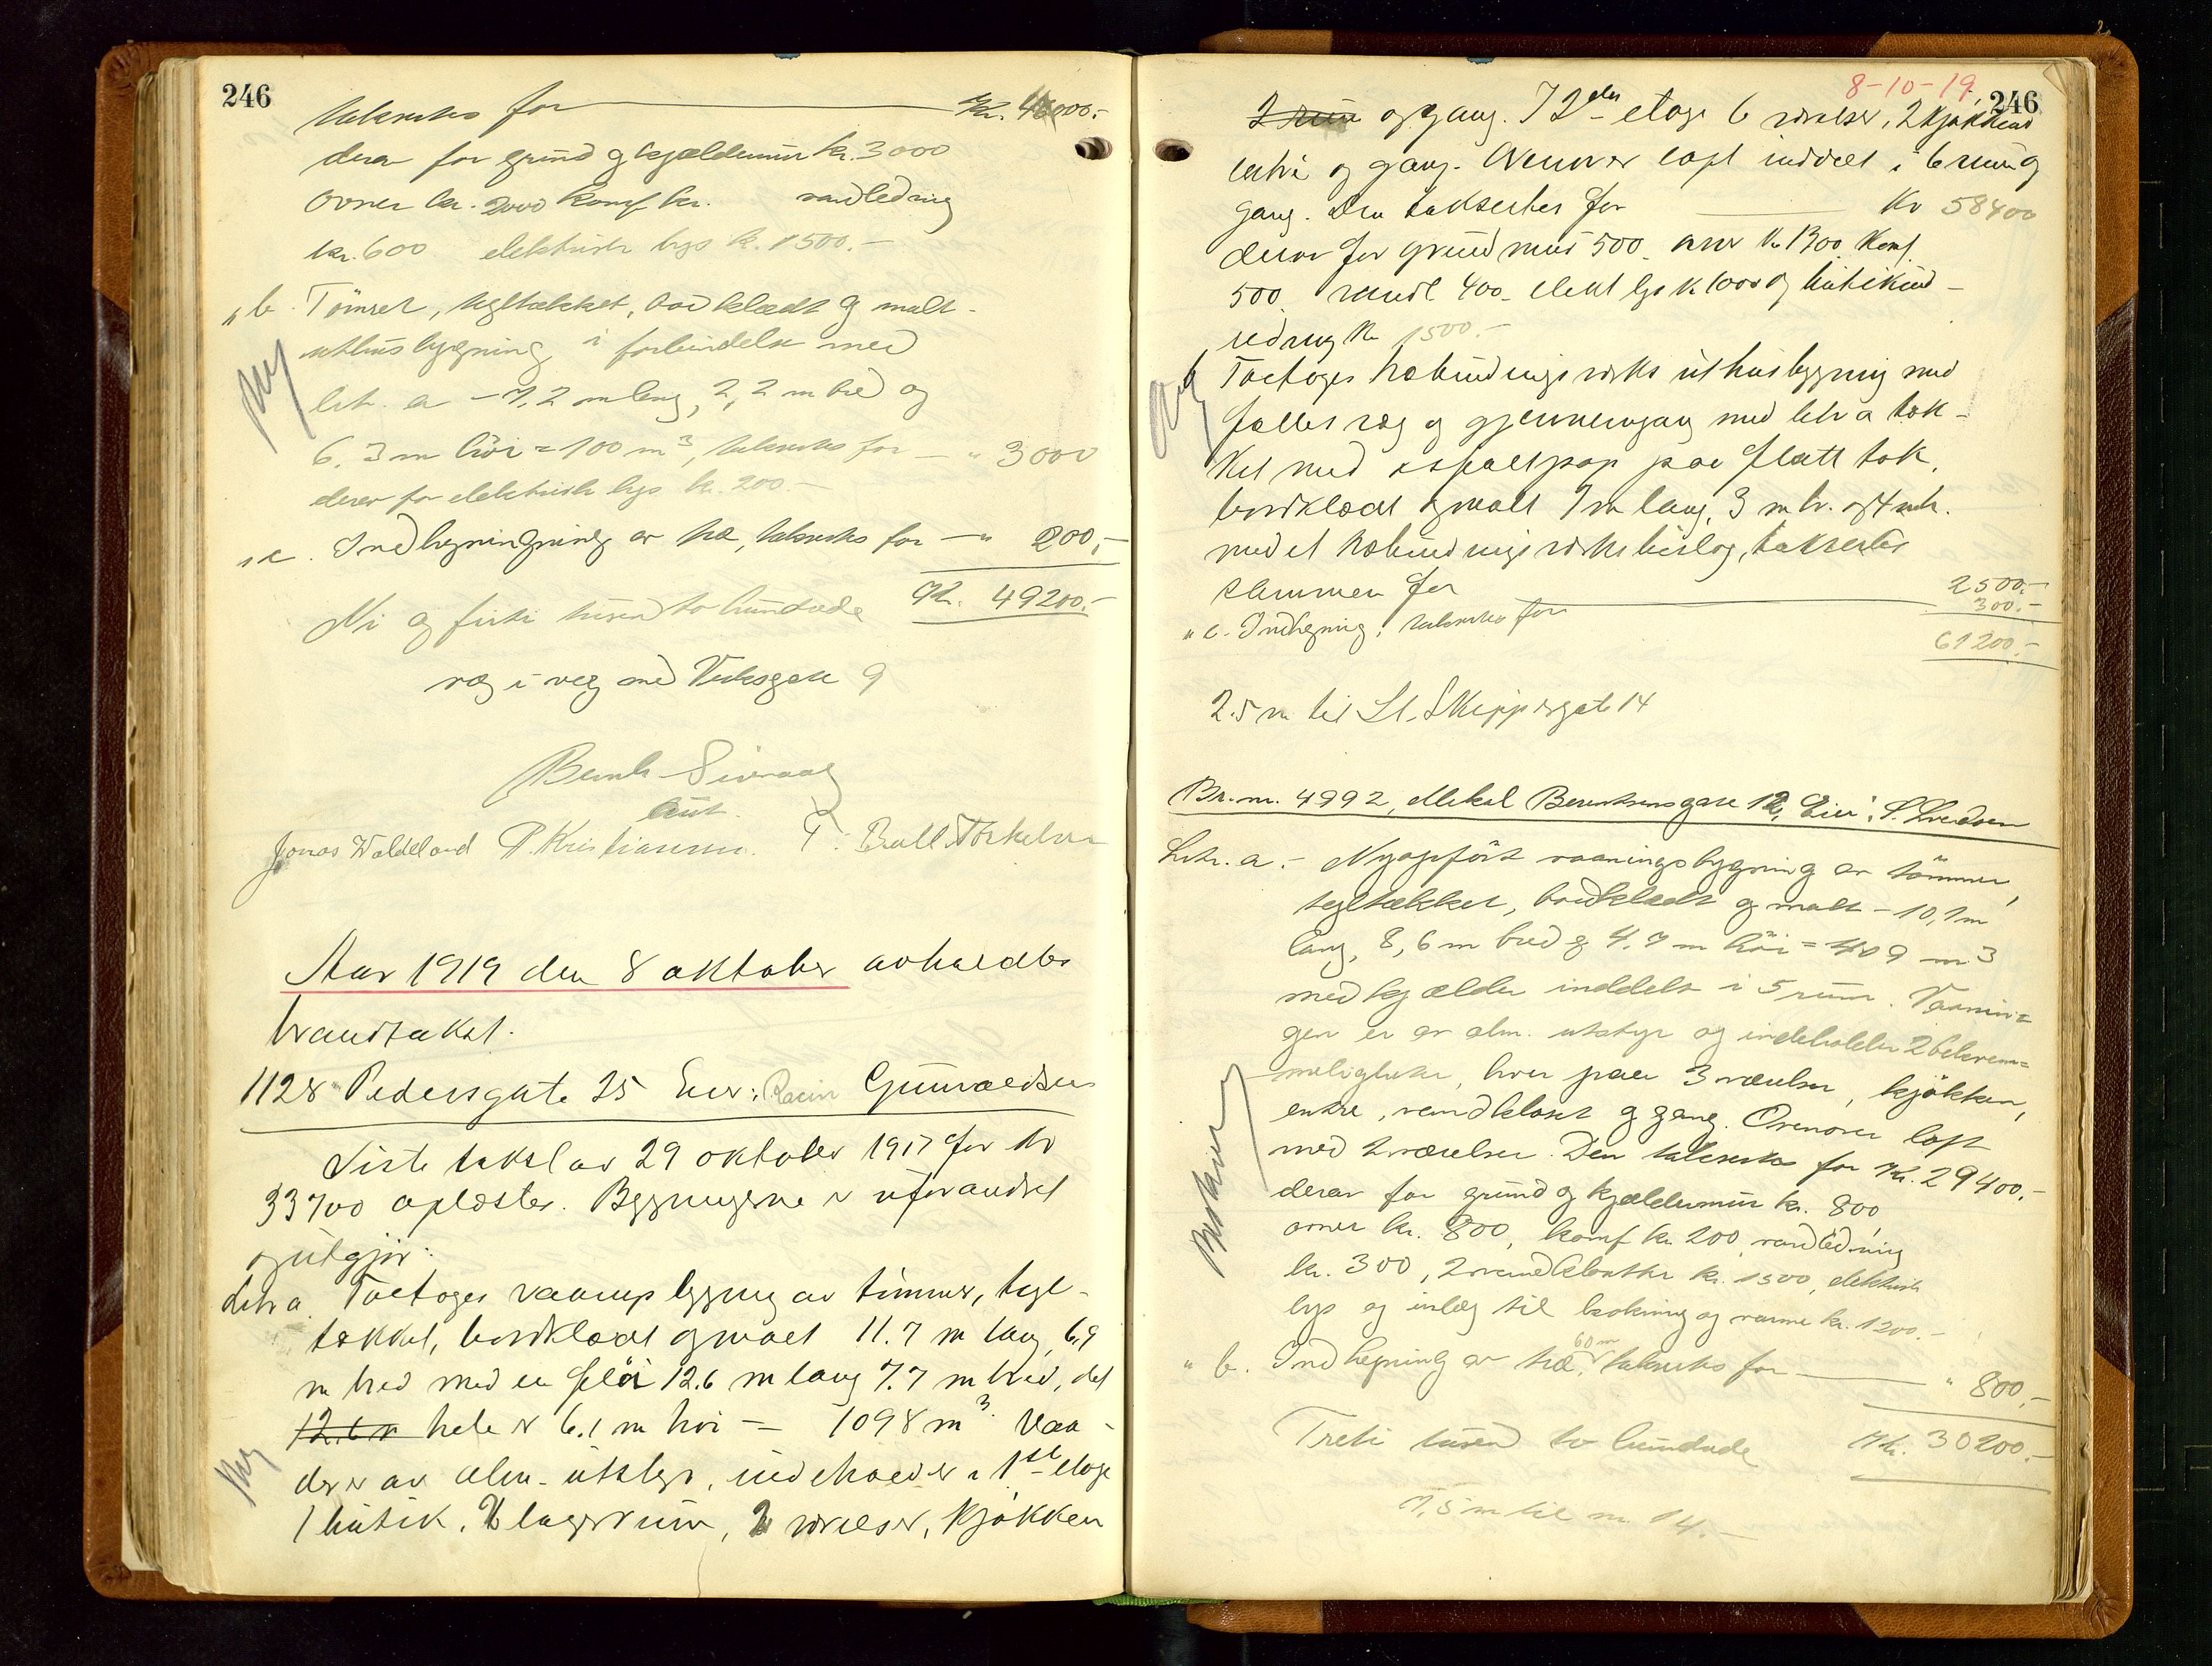 246
takseres for Kr. 46000.-
derav for grund og kjældermur kr. 3000
Ovner kr. 2000 komf kr. vandledning
kr. 600 elektrisk lys kr. 1500.-
" b. Tömret, tegltækket, bordklædt og malt
uthusbygning i forbindelse med
litr. a - 7,2 m lang, 2,2 m bred og
6.3 m höi = 100 m3, takseres for - " 3000
derav for elektrisk lys kr. 200 -
Ny
" c. Indhegningning av træ, takseres for - " 200,-
Kr. 49200.-
Ni og firti tusen to hundrede
væg i væg med Verksgate 9
Bernh.
Jonas Waldeland P. Kristiansen. T. Bull Torkelsen
Aar 1919 den 8 oktober avholdtes
brandtakst.
1128 Pedersgate 25 Eier: Gunvaldsen
Siste takst av 29 oktober 1917 for kr
33700 oplæstes. Bygningerne er uforandret
og utgjör:
Litr a Toetages vaaningsbygning av tømmer, tegl-
tækket, bordklædt og malt 11.7 m lang 6,9
m bred med en fløi 12.6 m lang 7.7 m bred, det
12.6 m hele er 6.1 m høi = 1098 m3. Vaa-
Ny
der er av alm. utstyr, indeholder i 1ste etage
1 butik, 2 lagerrum, 2 værelser, kjøkken
8-10-19
246
2 rum og gang. I 2den etage 6 værelser, 2 kjøkkener
entre og gang. Ovenover loft inddelt i 6 rum og
gang. Den takseres for Kr 58400
derav for grundmur 500. ovner kr 1300 Komf.
500 vandl 400 elekt lys kr 1000 og butikind-
redning kr 1500.-
b Toetages træbindingsverks uthusbygning med
Ny
fælles væg og gjennemgang med litr a tæk-
ket med asfaltpap paa flatt tak,
bordklædt og malt 7 m lang, 3 m br. og 4 m h.
med et træbindingsverks bislag, takseres
sammen for 2500.-
" c. Indhegning, takseres for 300.-
61200.-
2.5 m til St. Skippergate 14
Br. nr. 4992, Mikal Berentsensgate 12, Eier: S. Svendsen
Litr. a. - Nyopfört vaaningsbygning av tömmer,
tegltækket, bordklædt og malt - 10,1 m
lang, 8,6 m bred og 4.7 m höi = 409 m3
med kjælder inddelt i 5 rum. Vaanin=
gen er av alm. utstyr og indeholder 2 bekvem=
meligheter, hver paa 3 værelser, kjökken,
entre, vandkloset og gang. Ovenover loft
med 2 værelser. Den takseres for Kr. 29400.-
derav for grund og kjældermur kr. 800
ovner kr. 800, komf kr 200 vandledning
kr. 300, 2 vandklosetter kr. 1500, elektrisk
lys og inlæg til kokning og varme kr. 1200.-
60 m
" b. Indhegning av træ, takseres for " 800,-
Treti tusen to hundrede Kr. 30200.-
7,5 m til nr 14.-